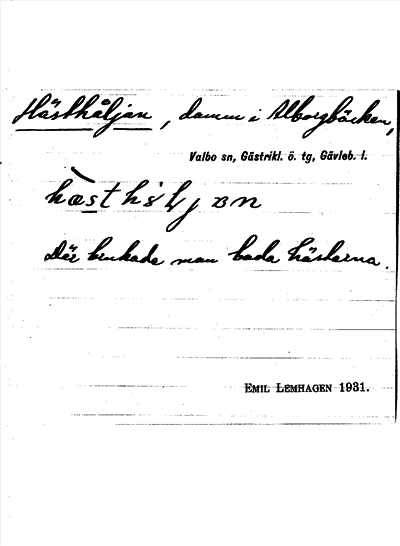 Hästhåljan, damm i Alborgbäcken,
Valbo sn, Gästrikl. ö. tg, Gävleb. l.
Där brukade man bada hästarna.
EMIL LEMHAGEN 1931.